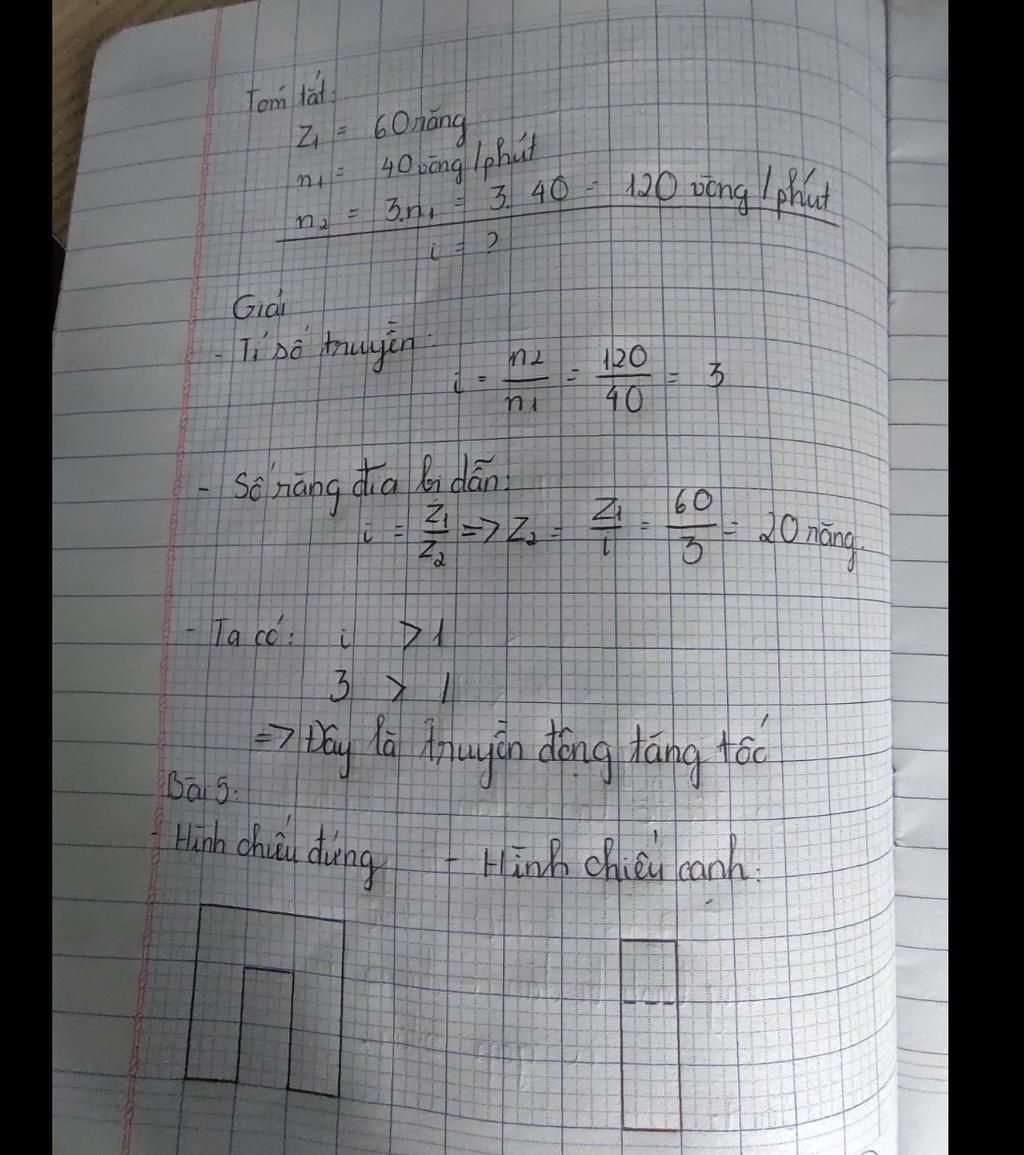 Tóm tắt:
Z1 = 60 răng
n1 = 40 vòng / phút
n2 = 3.n1 = 3. 40 = 120 vòng / phút
i = ?
Giải
- Tỉ số truyền:
i = n2/n1 = 120/40 = 3
- Số răng đĩa bị dẫn:
i = Z1/Z2 => Z2 = Z1/i = 60/3 = 20 răng.
- Ta có: i > 1
3 > 1
=> Đây là truyền động tăng tốc
Bài 5:
- Hình chiếu đứng - Hình chiếu cạnh: